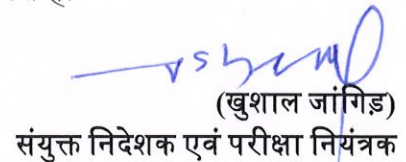 (खुशाल जांगिड़)
संयुक्त निदेशक एवं परीक्षा नियंत्रक